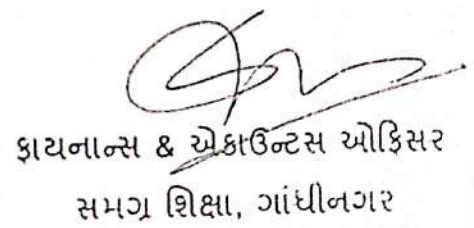 ફાયનાન્સ & એકાઉન્ટસ ઓફિસર
સમગ્ર શિક્ષા, ગાંધીનગર